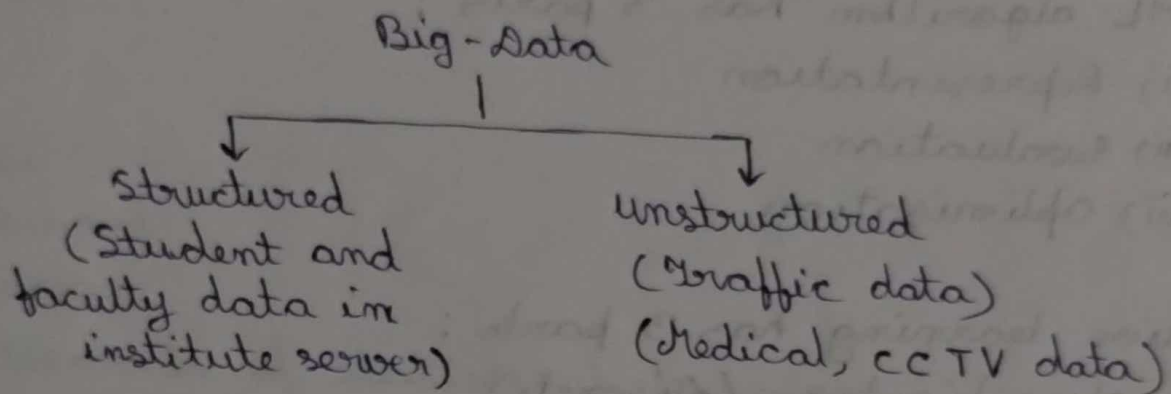 Big-Data
structured
(Student and
faculty data in
institute server)
unstructured
(Traffic data)
(Medical, CCTV data)